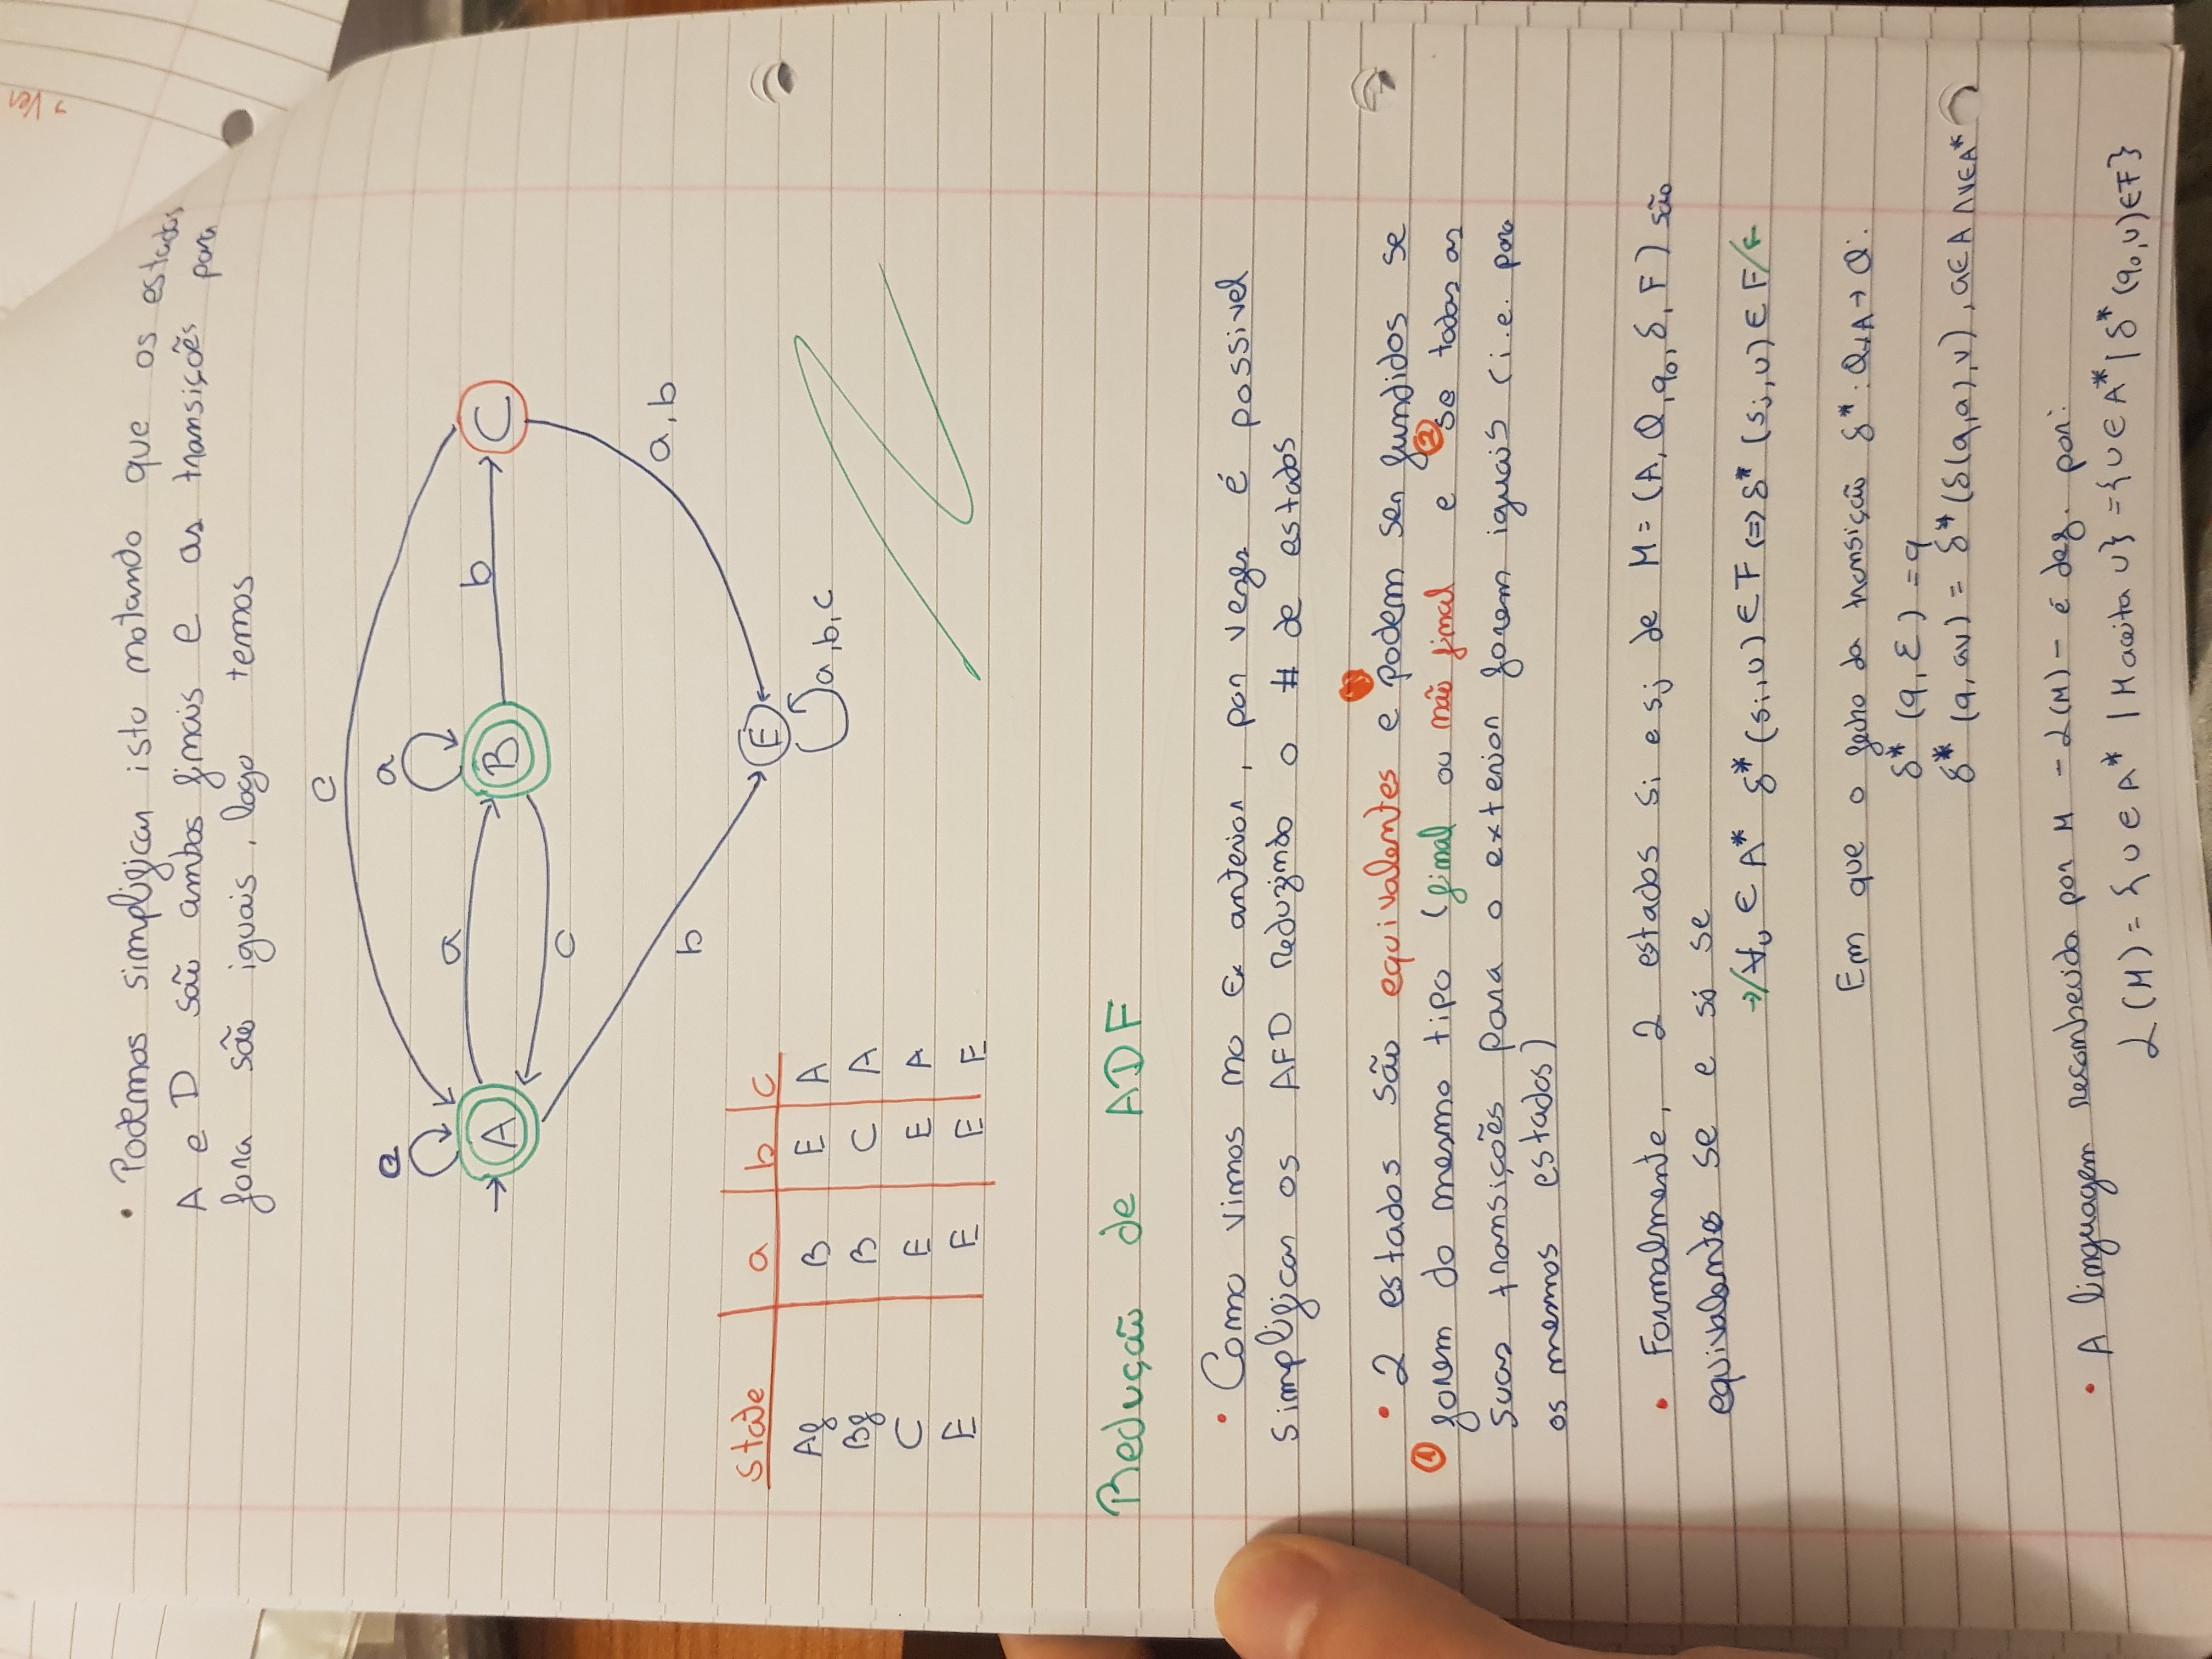 > Ver
• Podemos simplificar isto notando que os estados
A e D são ambos finais e as transições para
fora são iguais, logo temos
c
a
a
A
B
b
C
c
b
a,b
E
a,b,c
state a b c
Af B E A
Bf B C A
C E E A
E E E E
Redução de ADF
• Como vimos no Ex anterior, por vezes é possivel
simplificar os AFD reduzindo o # de estados
• 2 estados são equivalentes e podem ser fundidos se
① forem do mesmo tipo (final ou não final e ② se todas as
suas transições para o exterior forem iguais (i.e. para
os mesmos estados)
• Formalmente, 2 estados si e sj de M = (A, Q, q₀, δ, F) são
equivalentes se e só se
→/∀u ∈ A* δ*(si,u) ∈ F <=> δ*(sj,u) ∈ F/←
Em que o fecho da transição δ*: QxA → Q:
δ*(q, ε) = q
δ*(q, av) = δ*(δ(q,a),v), a∈A ∧ v∈A*
• A linguagem reconhecida por M - L(M) - é def. por:
L(M) = {u ∈ A* | M aceita u} = {u ∈ A* | δ*(q₀,u) ∈ F}